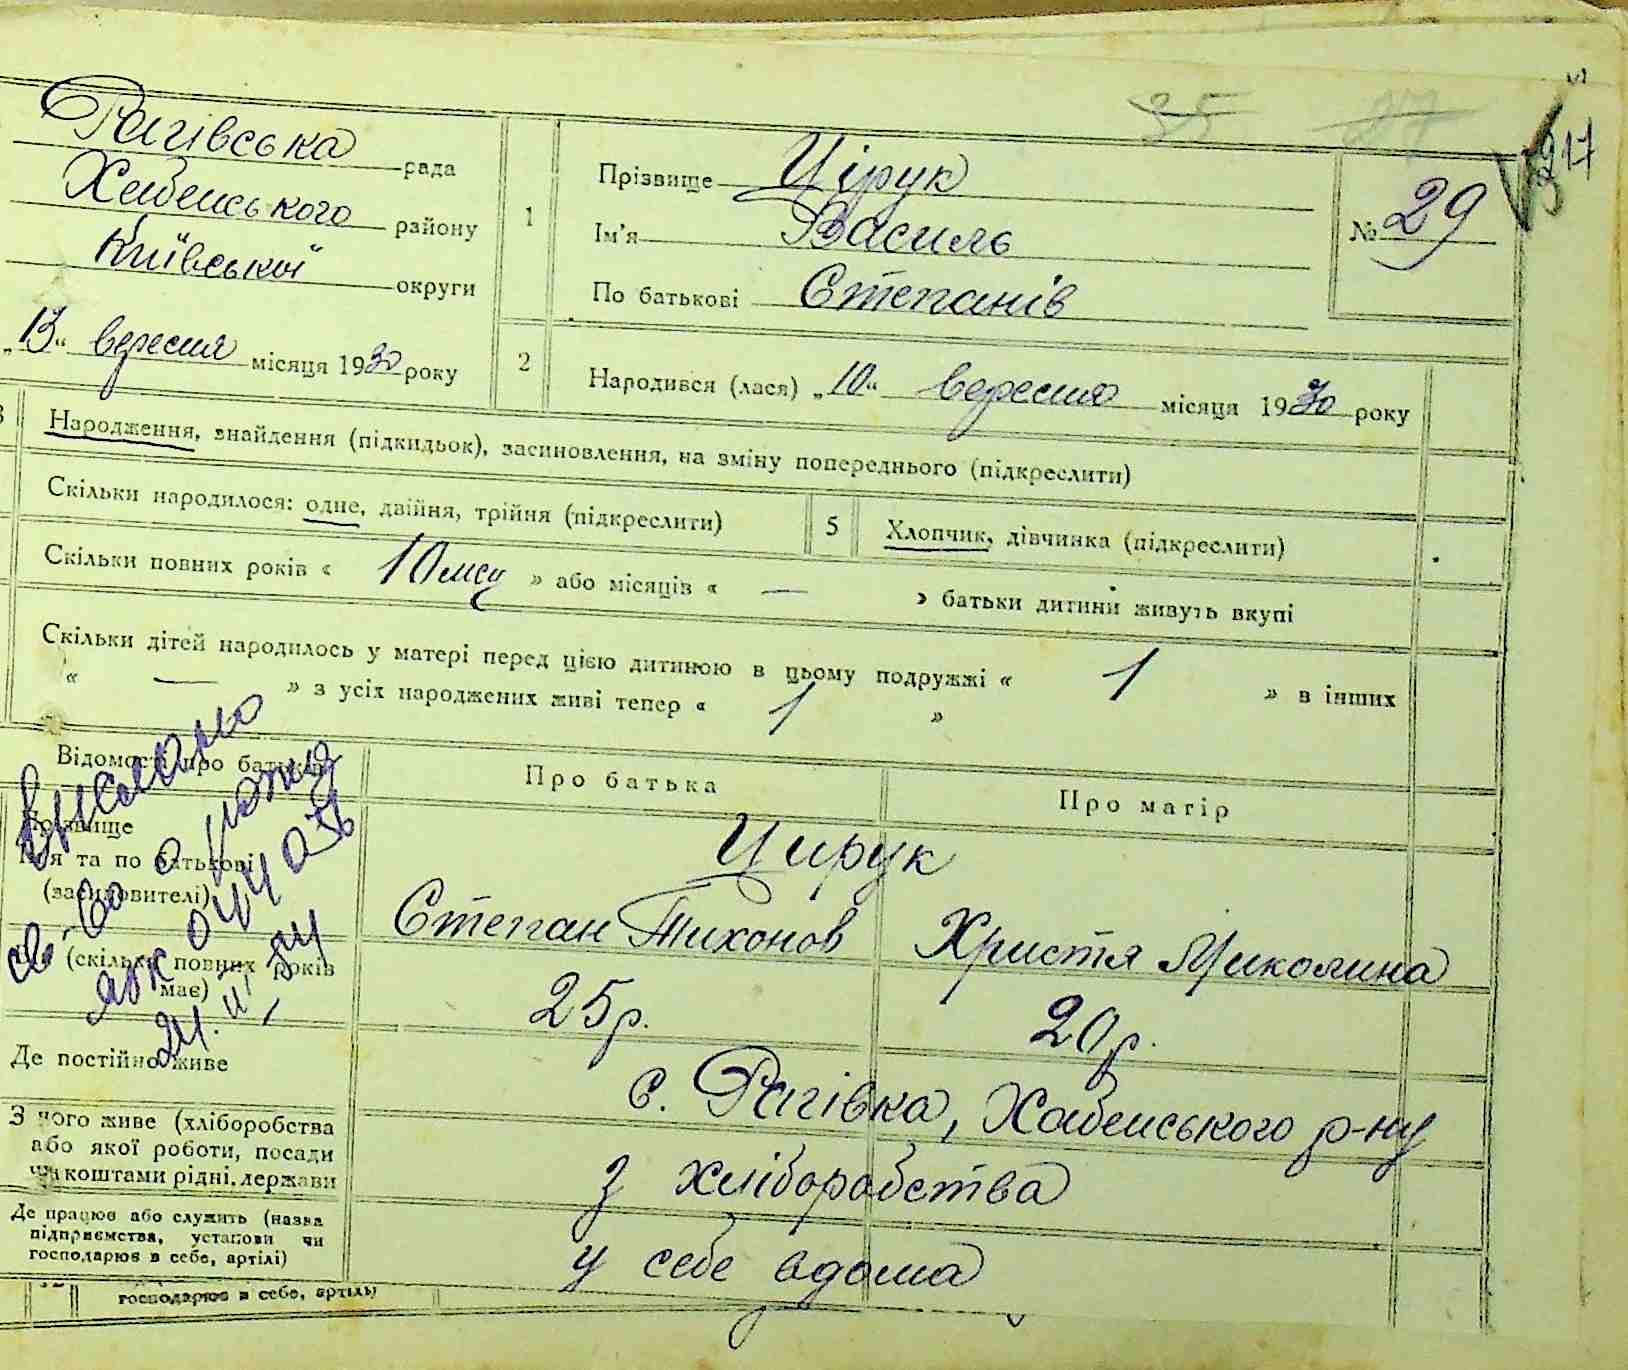 35 27
217
Рагівська рада
Хабенського району
Київської округи
„13“ вересня місяця 1930 року
1
Прізвище Цірук
Ім'я Василь
По батькові Степанів
№ 29
2
Народився (лася) „10“ вересня місяця 1930 року
3
Народження, знайдення (підкидьок), засиновлення, на зміну попереднього (підкреслити)
Скільки народилося: одне, двійня, трійня (підкреслити)
5
Хлопчик, дівчинка (підкреслити)
Скільки повних років « » або місяців « — » батьки дитини живуть вкупі
Скільки дітей народилось у матері перед цією дитиною в цьому подружжі « 1 » в інших
« — » з усіх народжених живі тепер « 1 »
Відомості про батьків
Про батька
Про матір
Прізвище
Ім'я та по батькові
(засиновителі)
Цирук
Степан Тихонов
Христя Миколина
(скільки повних років
має)
25 р.
20 р.
Де постійно живе
с. Рагівка, Хабенського р-ну
З чого живе (хліборобства
або якої роботи, посади
чи коштами рідні, держави
з хліборобства
Де працює або служить (назва
підприємства, установи чи
господарює в себе, артілі)
у себе вдома
господарює в себе, артілі)